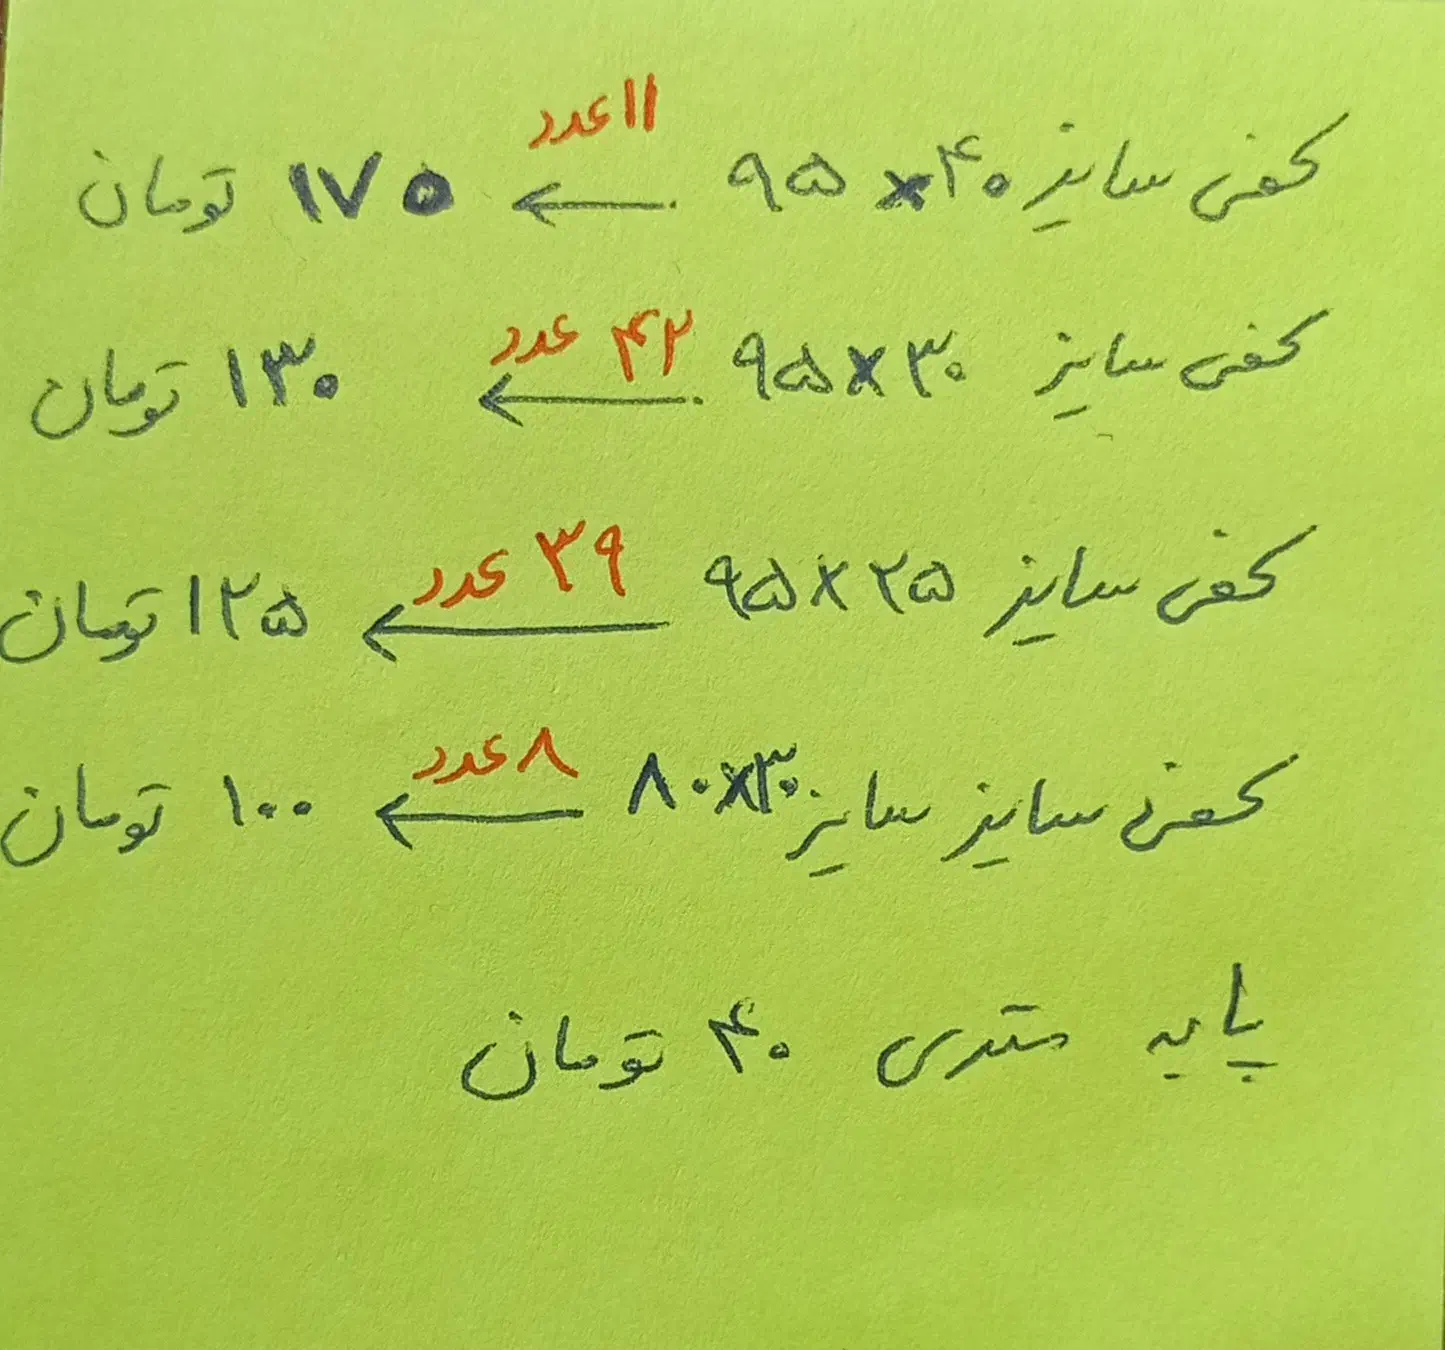 کفی سایز ۴۰×۹۵ ← ۱۱ عدد ۱۷۵ تومان
کفی سایز ۳۰×۹۵ ← ۴۲ عدد ۱۳۰ تومان
کفی سایز ۲۵×۹۵ ← ۳۹ عدد ۱۲۵ تومان
کفی سایز سایز ۳۰×۸۰ ← ۸ عدد ۱۰۰ تومان
پایه متری ۴۰ تومان